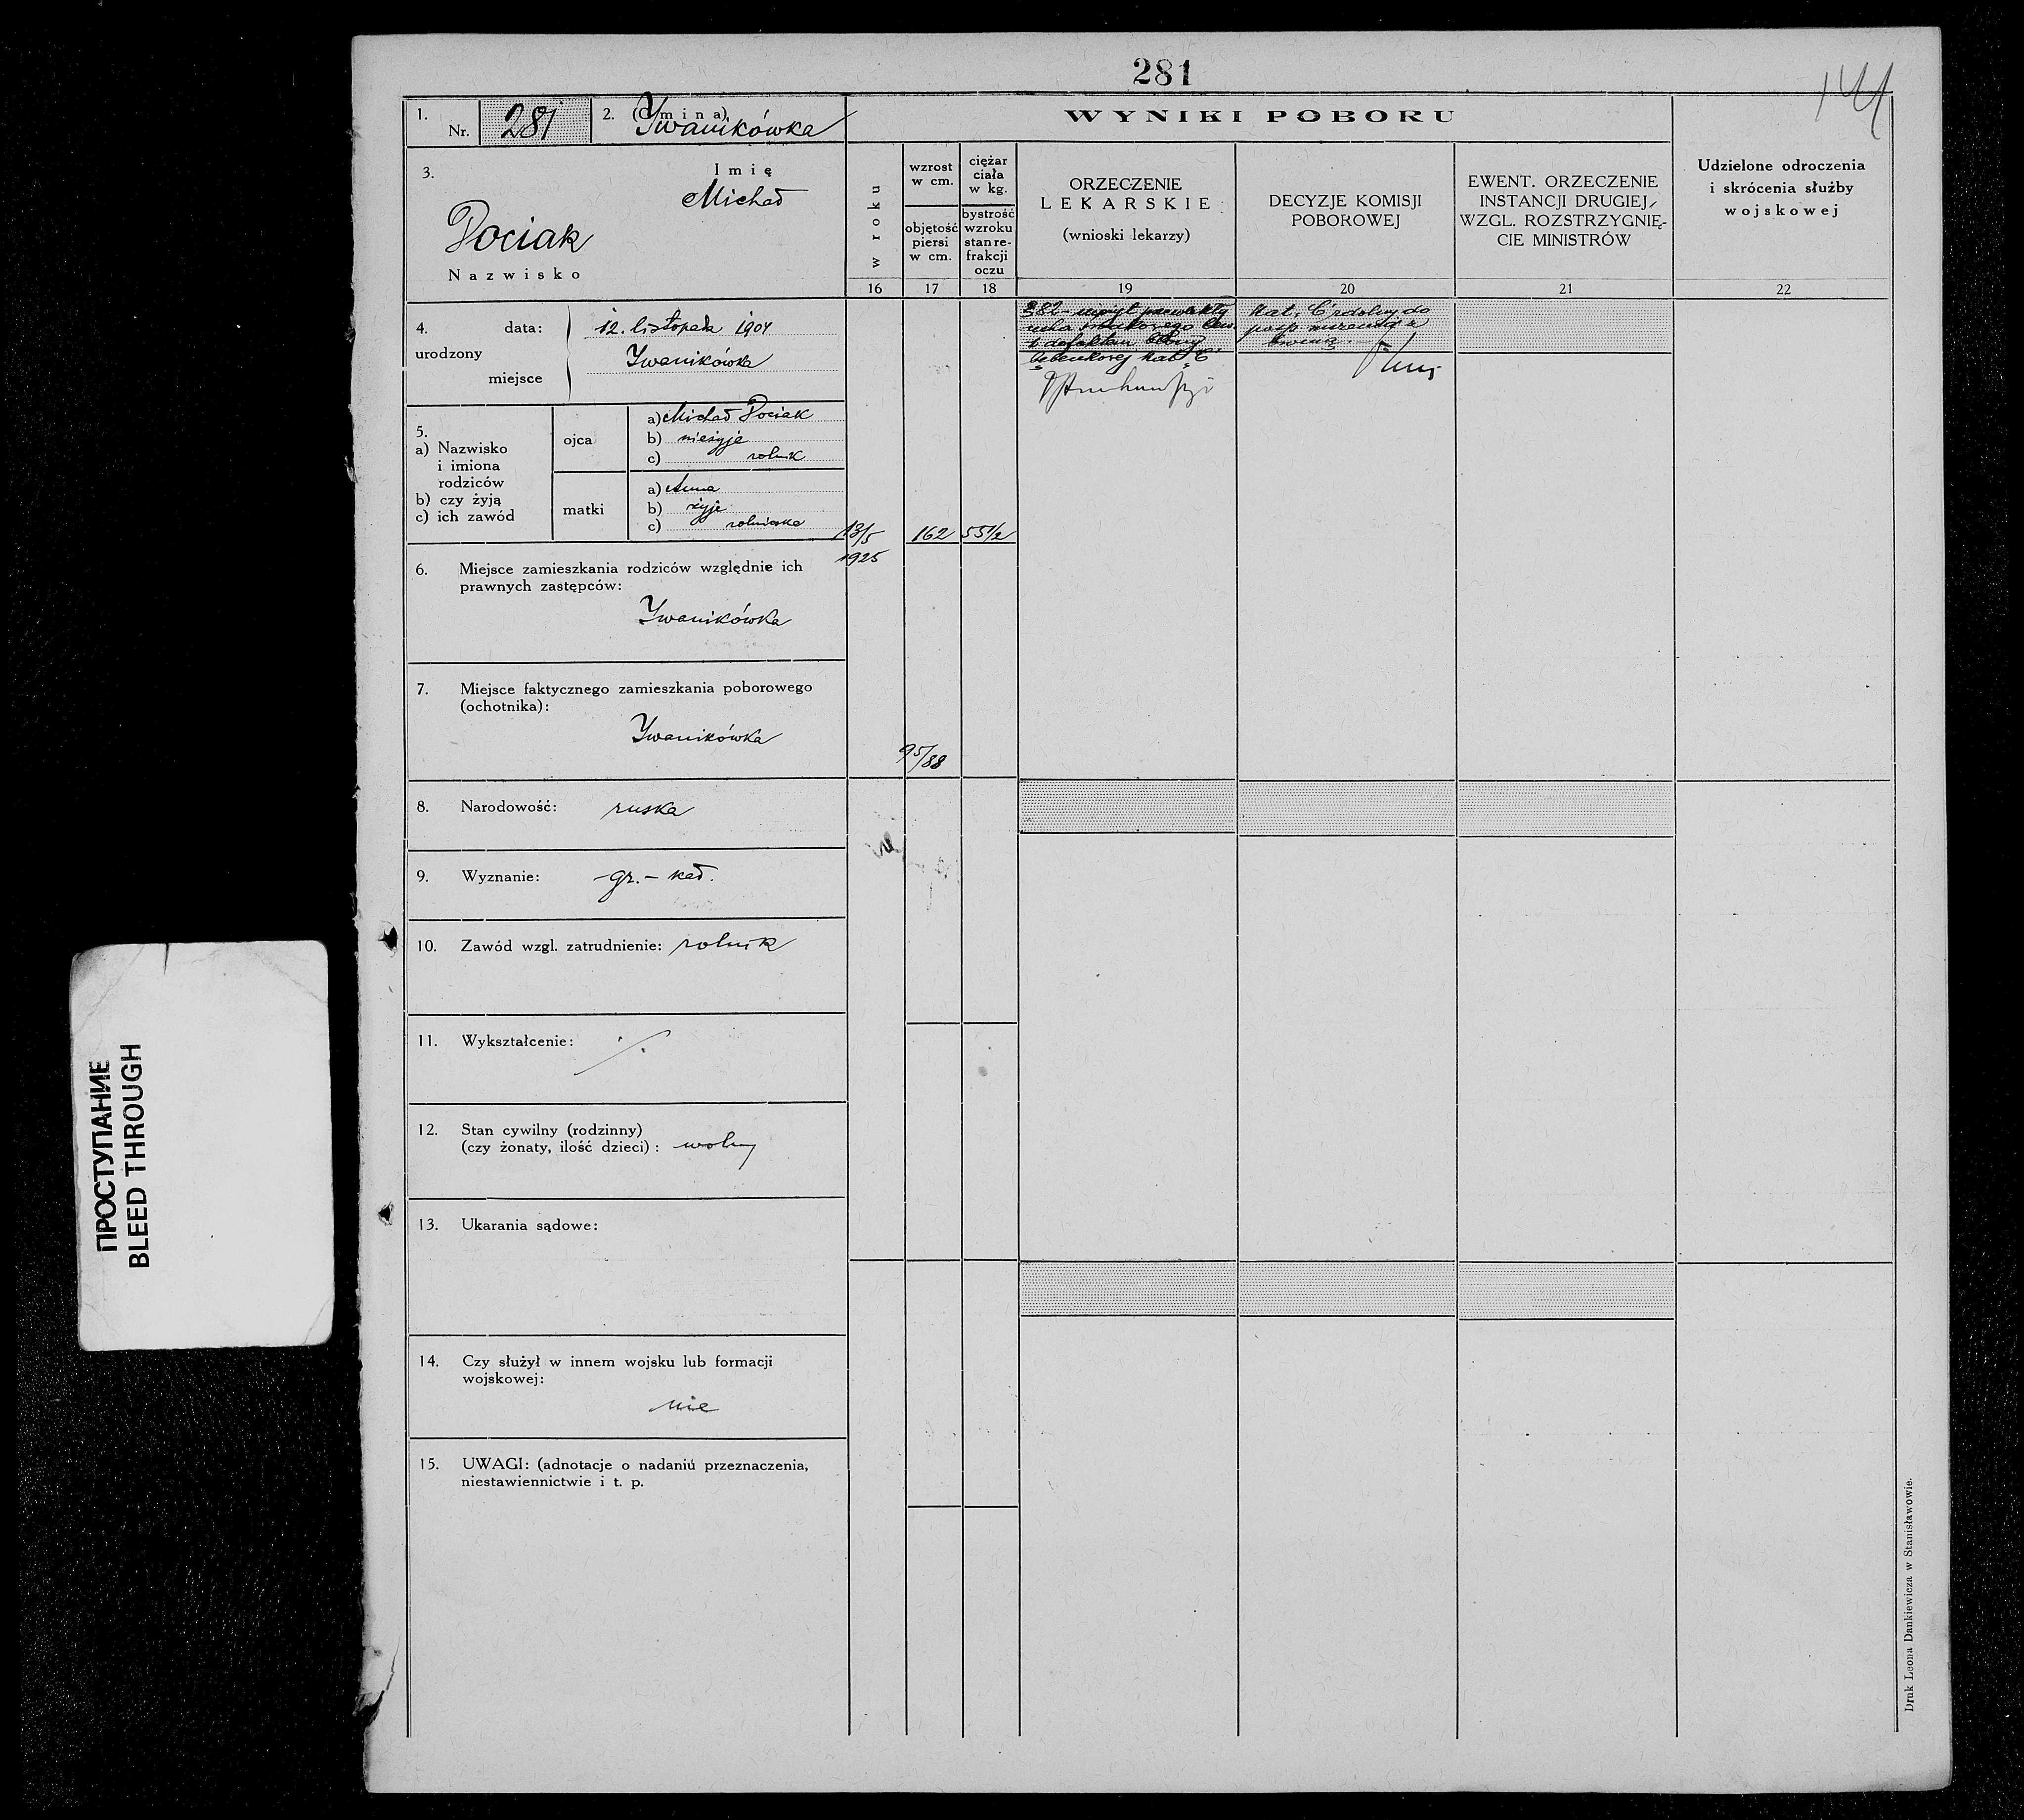 281
144
1.
Nr. 281
2. (Gmina) Iwanikówka
WYNIKI POBORU
3.
Imię
Michał
Pociak
Nazwisko
w roku
wzrost
w cm.
objętość
piersi
w cm.
ciężar
ciała
w kg.
bystrość
wzroku
stan re-
frakcji
oczu
ORZECZENIE
LEKARSKIE
(wnioski lekarzy)
DECYZJE KOMISJI
POBOROWEJ
EWENT. ORZECZENIE
INSTANCJI DRUGIEJ,
WZGL. ROZSTRZYGNIĘ-
CIE MINISTRÓW
Udzielone odroczenia
i skrócenia służby
wojskowej
16 17 18 19 20 21 22
4. data: 12. listopada 1904
urodzony
Iwanikówka
miejsce
382
ucha
z defektem błony
bębenkowej kat. C
Kat. C zdolny do
5.
a) Nazwisko
i imiona
rodziców
b) czy żyją
c) ich zawód
ojca
a) Michał Pociak
b) nieżyje
c) rolnik
matki
a) Anna
b) żyje
c) rolniczka
13/5
1925
162
55 1/2
6. Miejsce zamieszkania rodziców względnie ich
prawnych zastępców:
Iwanikówka
7. Miejsce faktycznego zamieszkania poborowego
(ochotnika):
Iwanikówka
95/88
8. Narodowość: ruska
9. Wyznanie: gr.-kat.
10. Zawód wzgl. zatrudnienie: rolnik
11. Wykształcenie: ./.
12. Stan cywilny (rodzinny)
(czy żonaty, ilość dzieci): wolny
13. Ukarania sądowe:
14. Czy służył w innem wojsku lub formacji
wojskowej:
nie
15. UWAGI: (adnotacje o nadaniu przeznaczenia,
niestawiennictwie i t. p.
Druk Leona Dankiewicza w Stanisławowie.
ПРОСТУПАНИЕ
BLEED THROUGH